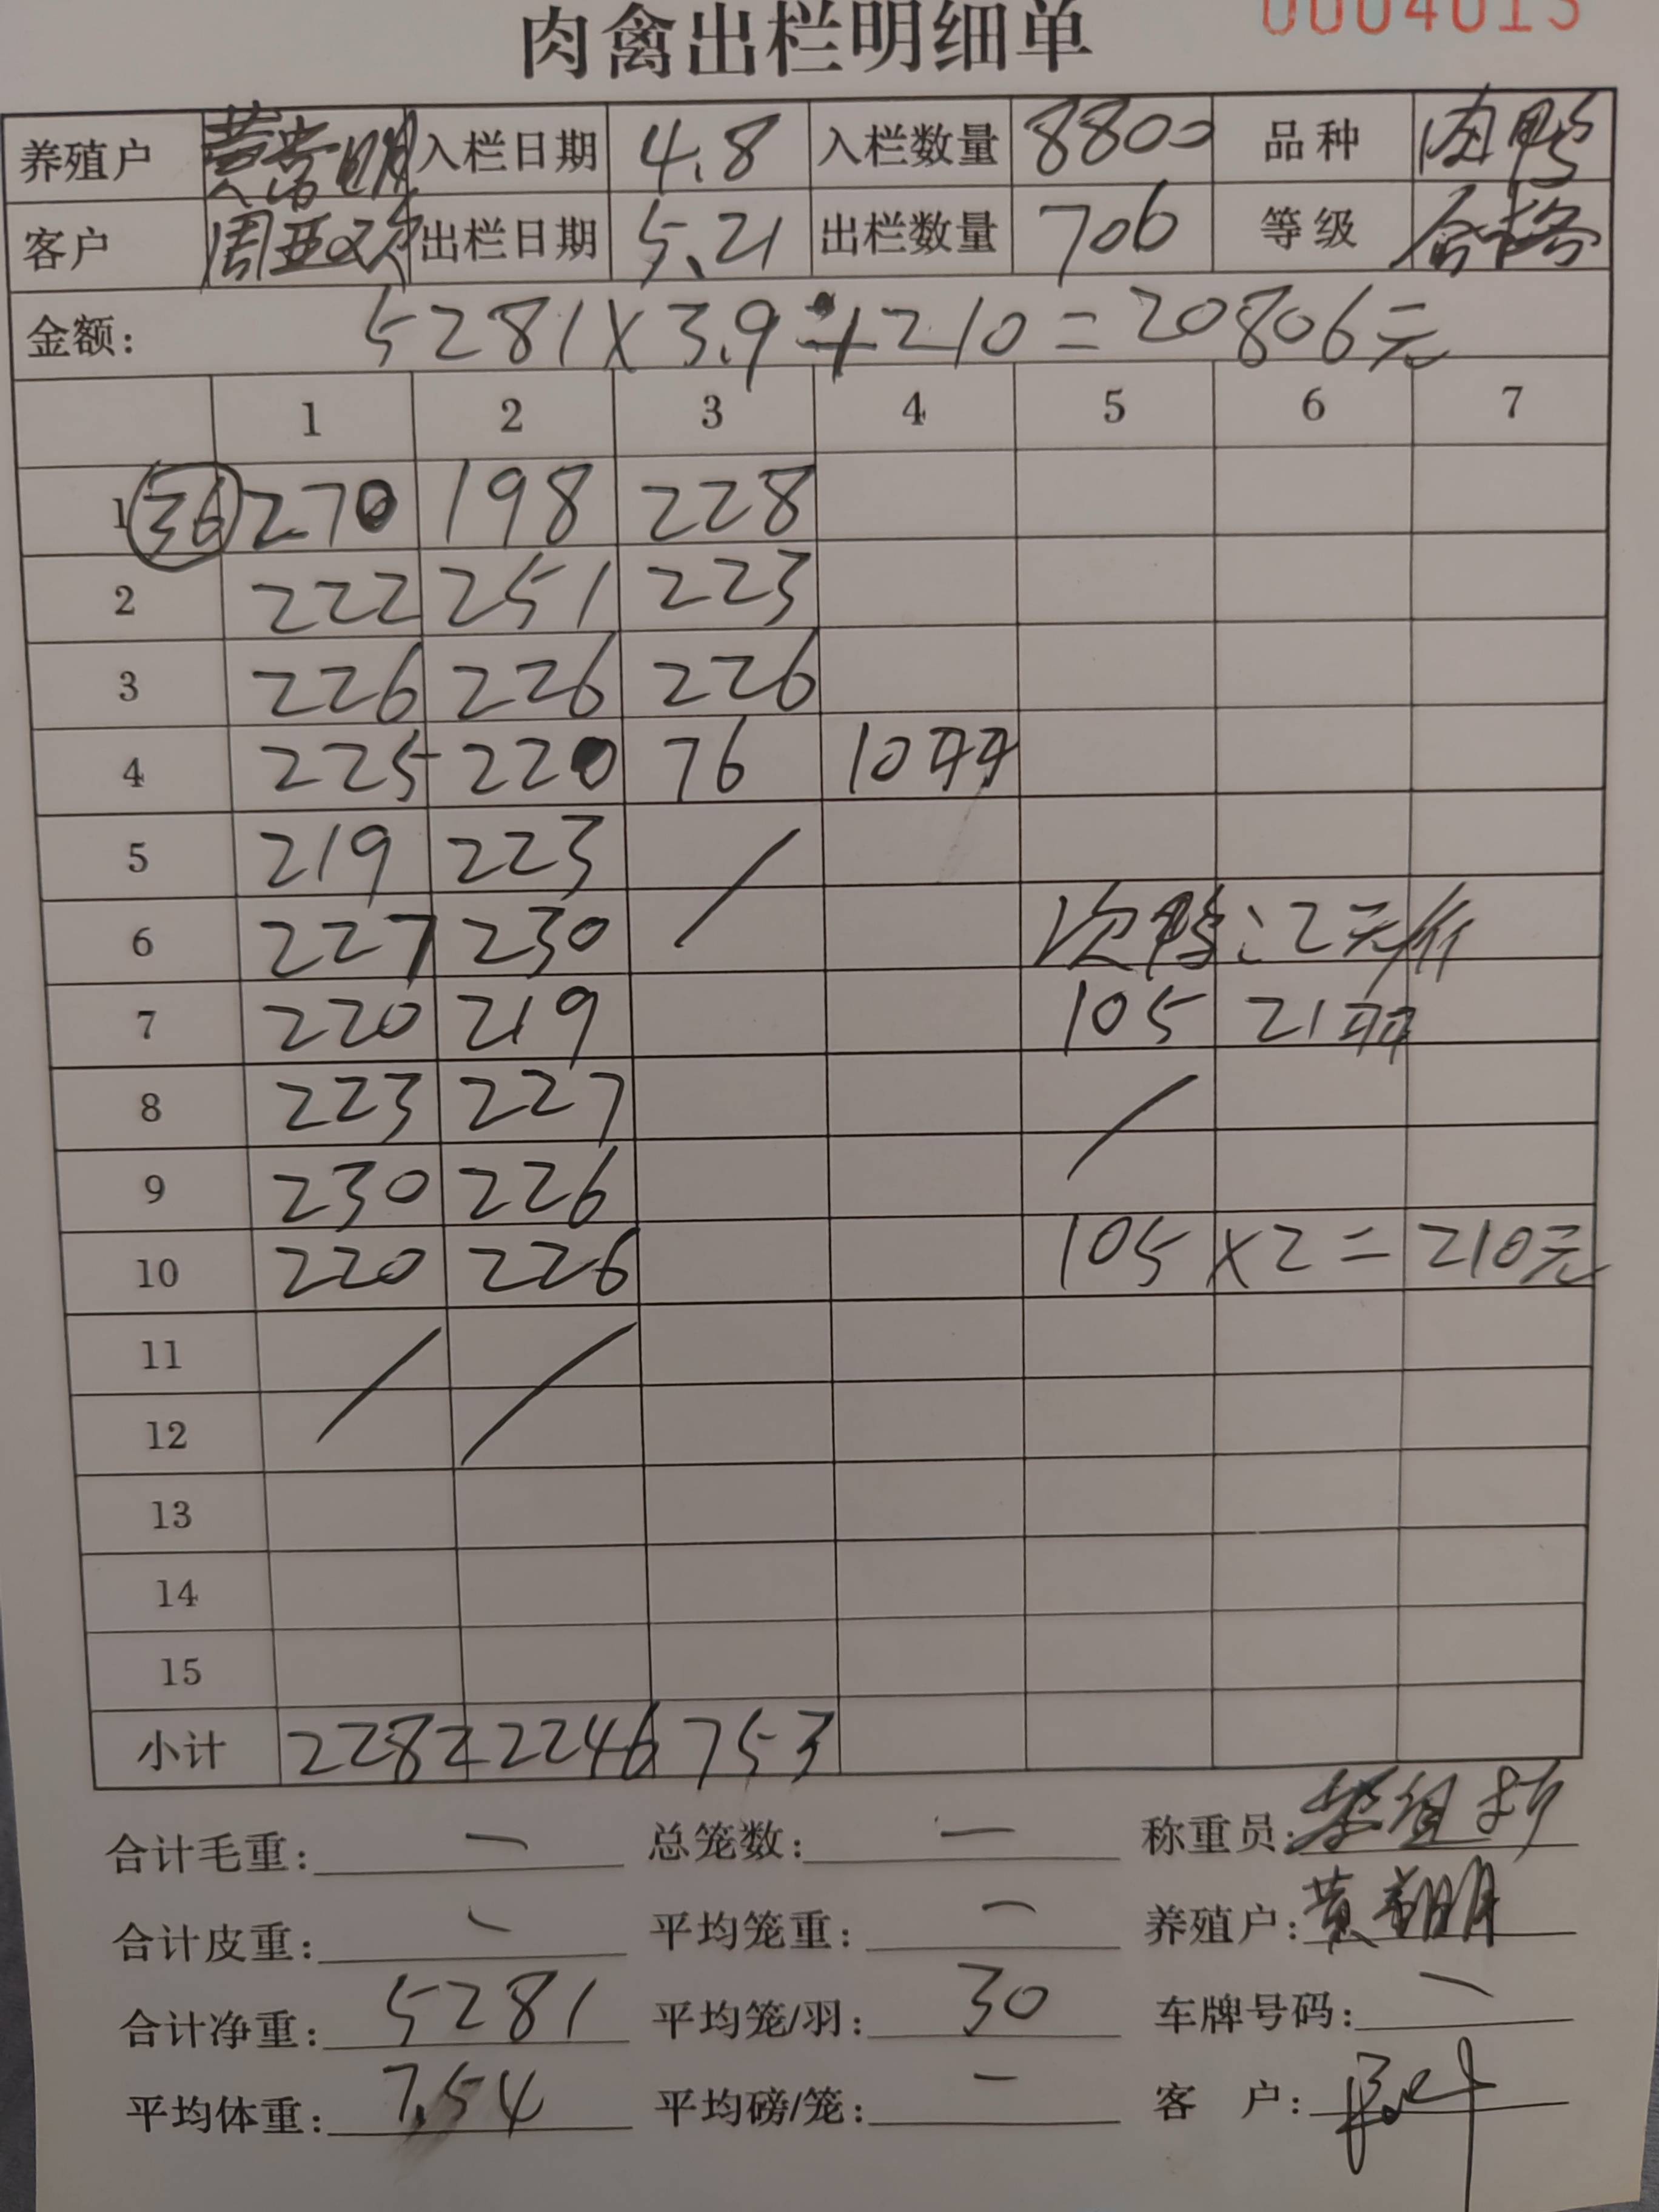 肉禽出栏明细单 0004013
养殖户 黄常明 入栏日期 4.8 入栏数量 8800 品种 肉鸭
客户 周亚欢 出栏日期 5.21 出栏数量 706 等级 合格
金额: 5281×3.9+210=20806元
1 2 3 4 5 6 7
1 36 270 198 228
2 222 251 223
3 226 226 226
4 225 220 76 10羽
5 219 223 /
6 227 230 次鸭:2元/斤
7 220 219 105 21羽
8 223 227 /
9 230 226
10 220 226 105 ×2= 210元
11 / /
12
13
14
15
小计 2282 2246 753
合计毛重: — 总笼数: — 称重员:
合计皮重: — 平均笼重: — 养殖户: 黄常明
合计净重: 5281 平均笼/羽: 30 车牌号码: —
平均体重: 7.54 平均磅/笼: — 客 户: